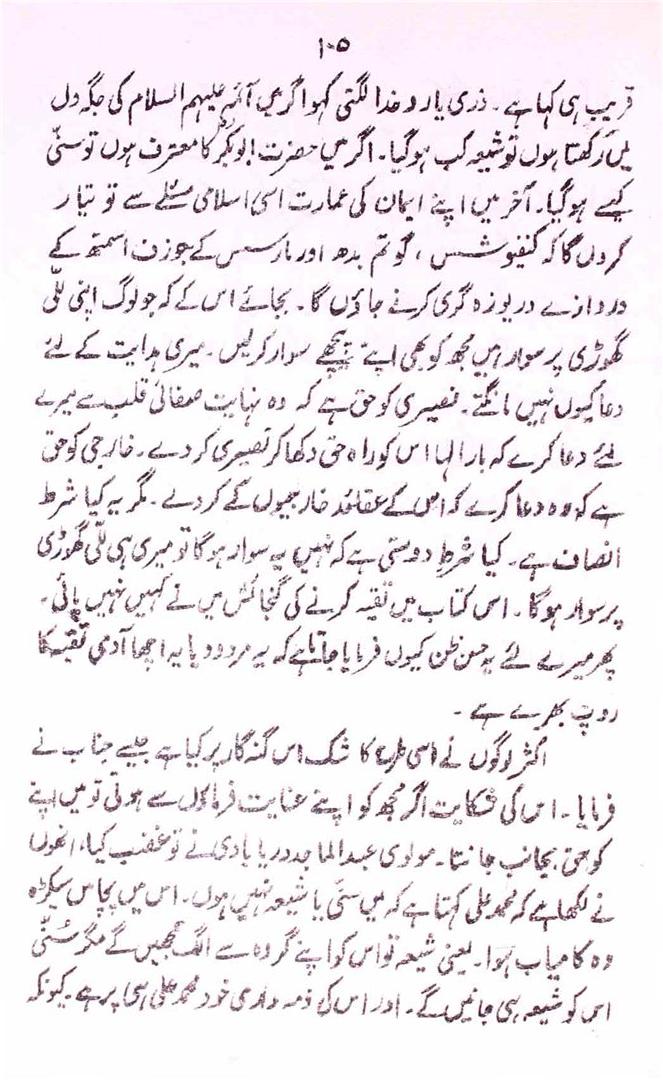 ۱۰۵
قریب ہی کہا ہے۔ ذری یارو خدا لگتی کہو اگر میں آئمہ علیہم السلام کی جگہ دل
میں رکھتا ہوں تو شیعہ کب ہوگیا۔ اگر میں حضرت ابوبکرؓ کا معترف ہوں تو سنّی
کیسے ہوگیا۔ آخر میں اپنے ایمان کی عمارت اسی اسلامی مسئلے سے تو تیار
کروں گا کہ کنفیوشس، گوتم بدھ اور مارسس کے جوزف اسمتھ کے
دروازے دریوزہ گری کرنے جاؤں گا۔ بجائے اس کے کہ جو لوگ اپنی للّی
گھوڑی پر سوار ہیں مجھ کو بھی اپنے پیچھے سوار کرلیں۔ میری ہدایت کے لئے
دعا کیوں نہیں مانگتے۔ نصیری کو حق ہے کہ وہ نہایت صفائی قلب سے میرے
لئے دعا کرے کہ بار الہا اس کو راہ حق دکھا کر نصیری کردے۔ خارجی کو حق
ہے کہ وہ دعا کرے کہ اس کے عقائد خارجیوں کے کردے۔ مگر یہ کیا شرط
انصاف ہے۔ کیا شرطِ دوستی ہے کہ نہیں یہ سوار ہوگا تو میری ہی للّی گھوڑی
پر سوار ہوگا۔ اس کتاب میں تقیہ کرنے کی گنجائش میں نے کہیں نہیں پائی۔
پھر میرے لئے یہ حسن ظن کیوں فرمایا جاتا ہے کہ یہ مردود یا یہ اچھا آدمی تقیہ کا
روپ بھرے ہے۔
اکثر لوگوں نے اسی طرح کا شک اس گنہگار پر کیا ہے جیسے جناب نے
فرمایا۔ اس کی شکایت اگر مجھ کو اپنے عنایت فرماؤں سے ہوتی تو میں اپنے
کو حق بجانب جانتا۔ مولوی عبدالماجد دریابادی نے تو غضب کیا، انھوں
نے لکھا ہے کہ محمد علی کہتا ہے کہ میں سنّی یا شیعہ نہیں ہوں۔ اس میں پچاس سیکڑہ
وہ کامیاب ہوا۔ یعنی شیعہ تو اس کو اپنے گروہ سے الگ سمجھیں گے مگر سُنّی
اس کو شیعہ ہی جانیں گے۔ اور اس کی ذمہ داری خود محمد علی ہی پر ہے۔ کیونکہ